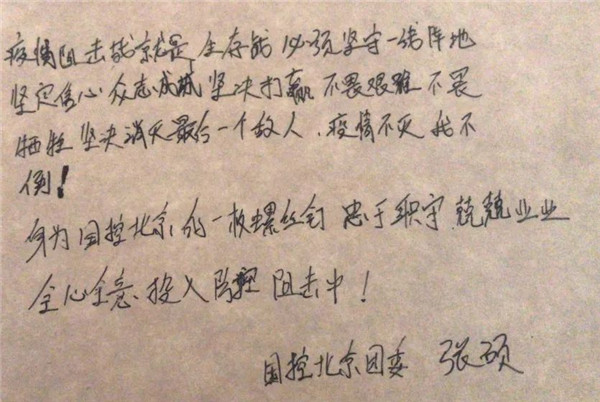 疫情阻击战就是 生存战 必须坚守一线阵地
坚定信心 众志成城 坚决打赢 不畏艰难 不畏
牺牲 坚决消灭最后一个敌人.疫情不灭 我不
倒!
身为国控北京的一枚螺丝钉 忠于职守 兢兢业业
全心全意 投入防控 阻击中!
国控北京团委 张硕